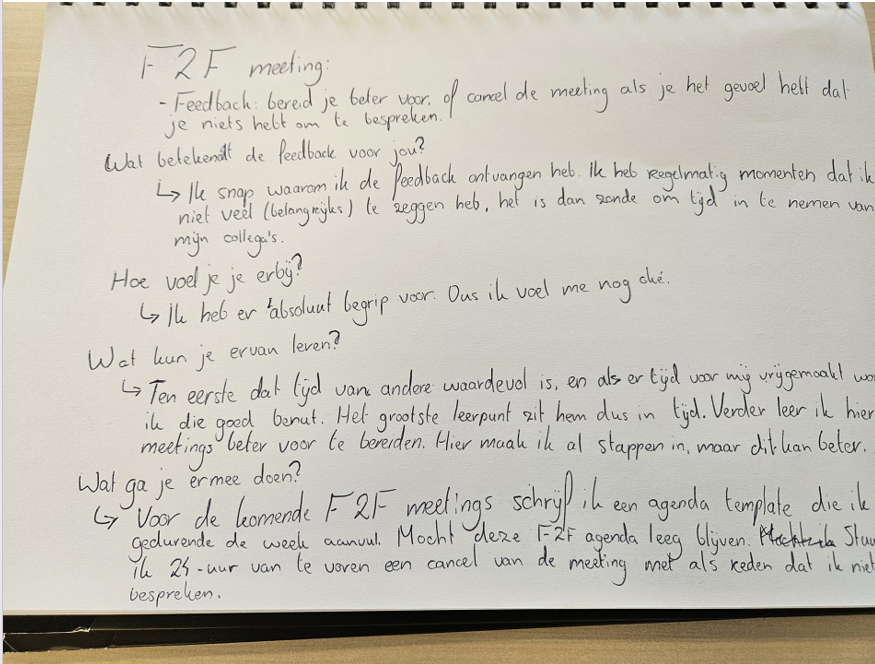 F2F meeting:
- Feedback: bereid je beter voor, of cancel de meeting als je het gevoel hebt dat
je niets hebt om te bespreken.
Wat betekendt de feedback voor jou?
↳ Ik snap waarom ik de feedback ontvangen heb. Ik heb regelmatig momenten dat ik
niet veel (belangrijks) te zeggen heb, het is dan zonde om tijd in te nemen van
mijn collega's.
Hoe voel je je erbij?
↳ Ik heb er absoluut begrip voor. Dus ik voel me nog oké.
Wat kun je ervan leren?
↳ Ten eerste dat tijd van andere waardevol is, en als er tijd voor mij vrijgemaakt wo
ik die goed benut. Het grootste leerpunt zit hem dus in tijd. Verder leer ik hier
meetings beter voor te bereiden. Hier maak ik al stappen in, maar dit kan beter.
Wat ga je ermee doen?
↳ Voor de komende F2F meetings schrijf ik een agenda template die ik
gedurende de week aanvul. Mocht deze F2F agenda leeg blijven. Stuu
ik 24-uur van te voren een cancel van de meeting met als reden dat ik niet
bespreken.